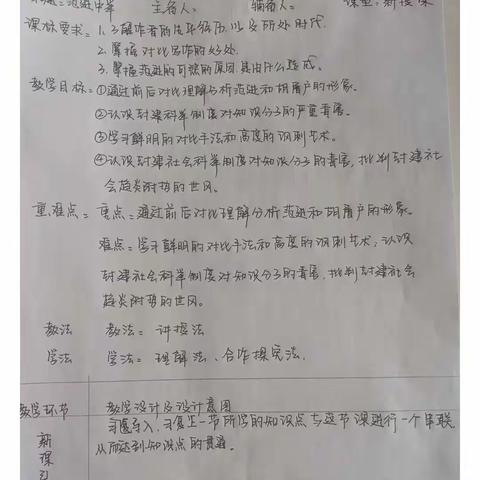 课题：范进中举 主备人： 辅备人： 课型：新授课
课标要求：1.了解作者的生平经历，以及所处时代。
2.掌握对比写作的好处。
3.掌握范进的可悲的原因是由什么造成。
教学目标：①通过前后对比理解分析范进和胡屠户的形象。
②认识封建科举制度对知识分子的严重毒害。
③学习鲜明的对比手法和高度的讽刺艺术。
④认识封建社会科举制度对知识分子的毒害，批判封建社
会趋炎附势的世风。
重难点：重点：通过前后对比理解分析范进和胡屠户的形象。
难点：学习鲜明的对比手法和高度的讽刺艺术，认识
封建社会科举制度对知识分子的毒害，批判封建社会
趋炎附势的世风。
教法 教法：讲授法
学法 学法：理解法、合作探究法。
教学环节 教学设计及设计意图
新课引 习题导入，习复上一节所学的知识点与这节课进行一个串联
从而达到知识点的贯通。